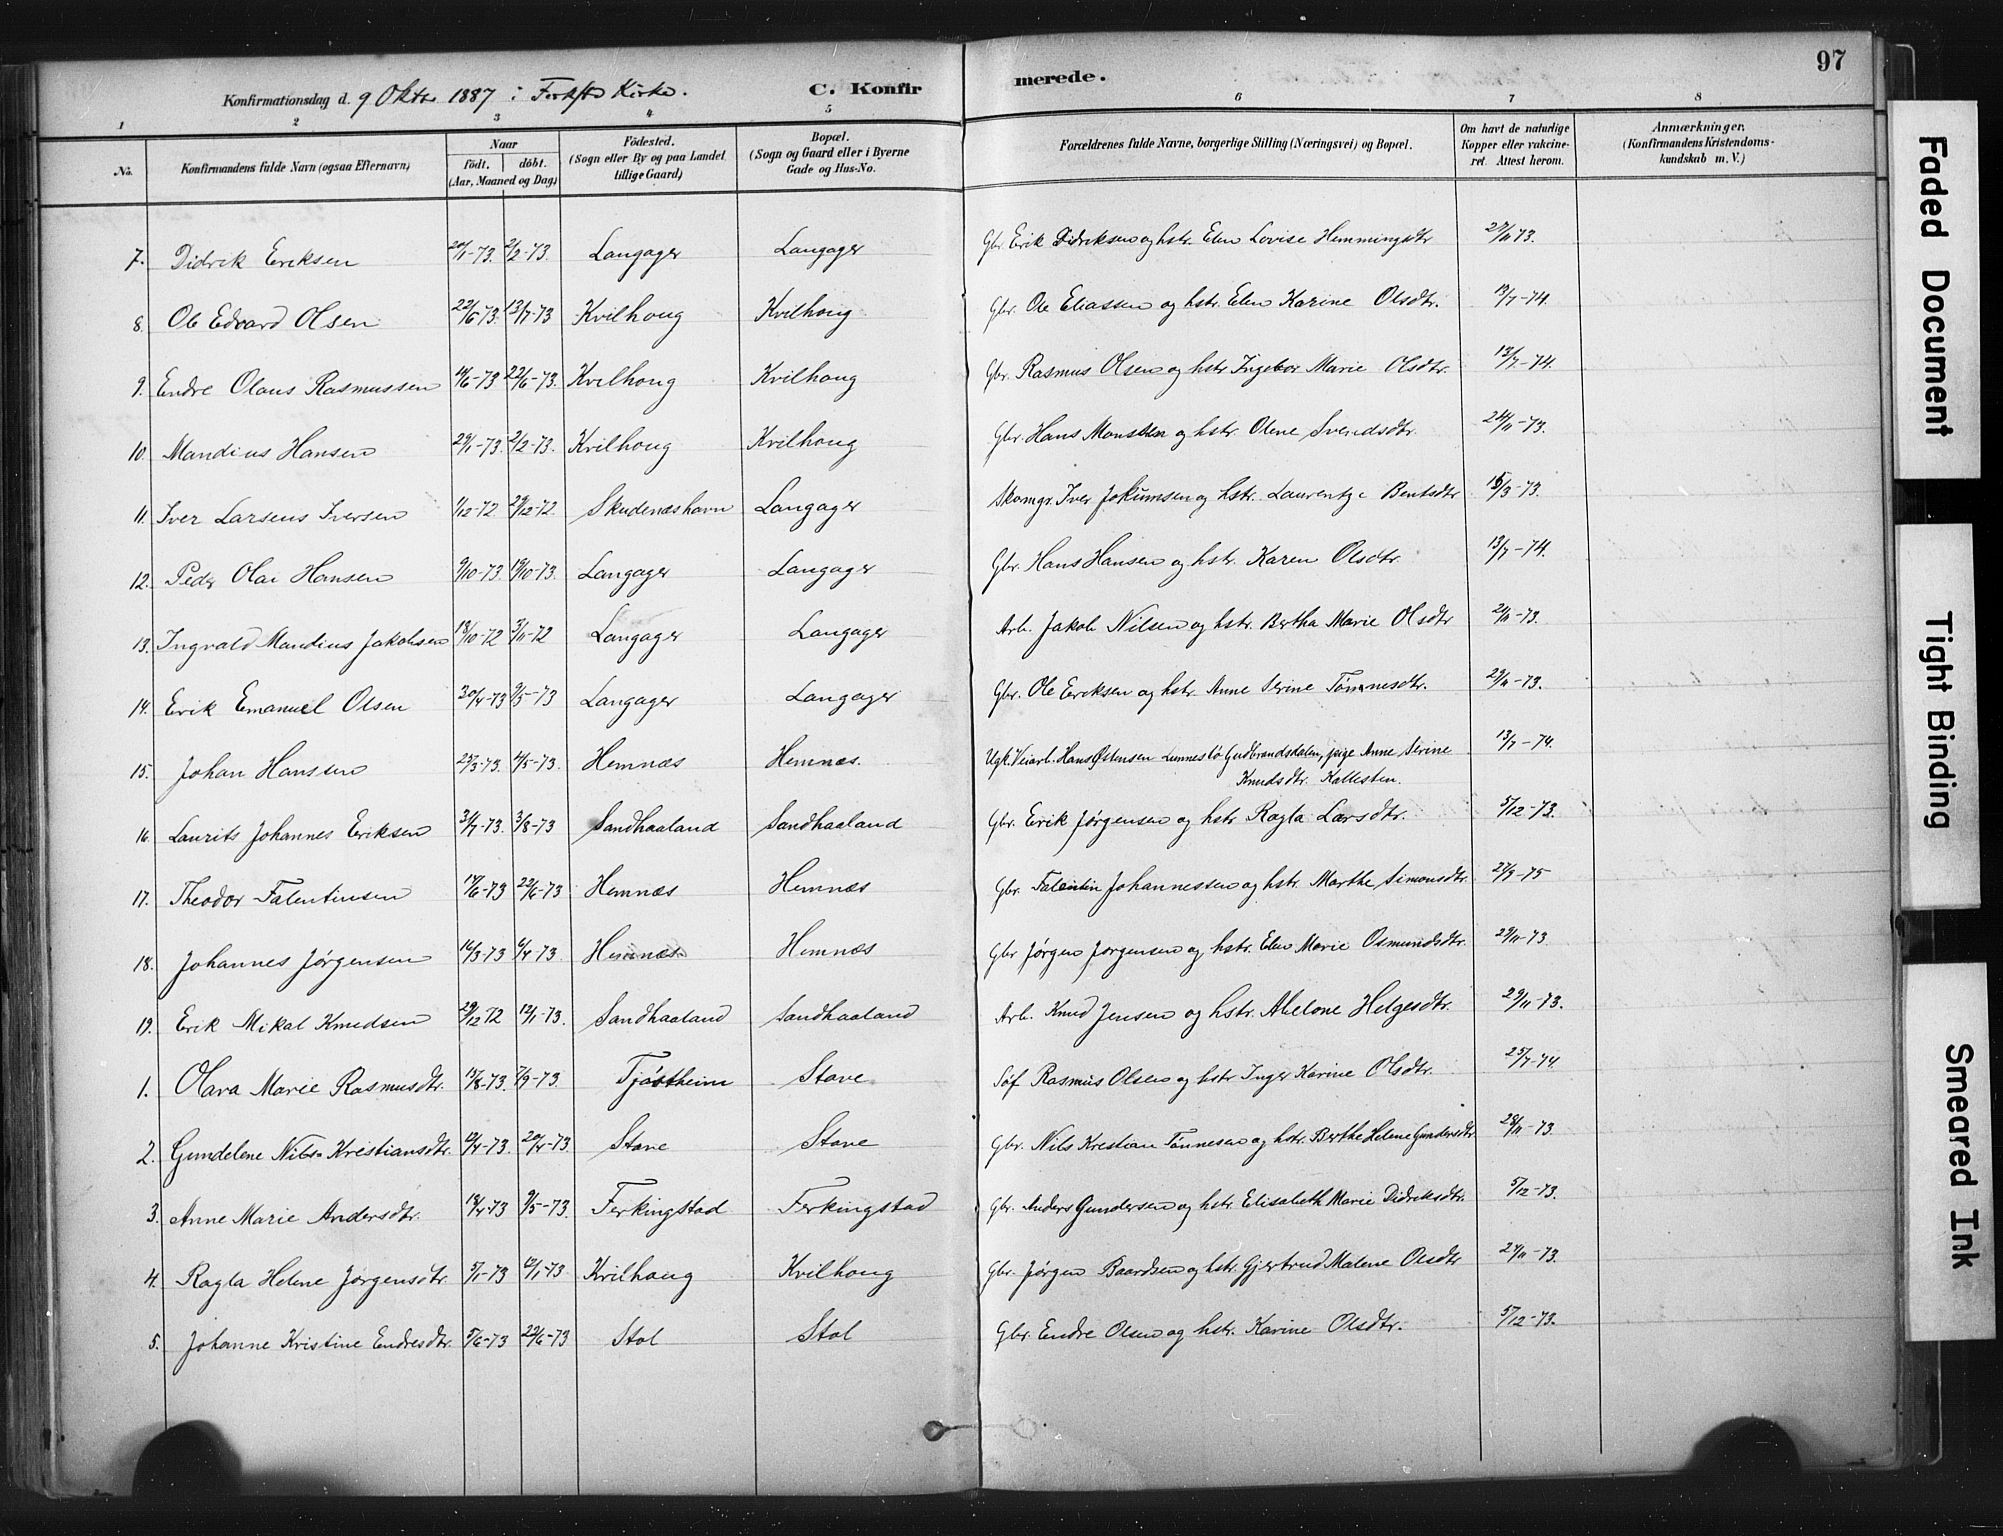 97
Konfirmationsdag d. 9 Oktbr 1887 i Ferkfts Kirke.
C. Konfirmerede.
1 2 3 4 5 6 7 8
No. Konfirmandens fulde Navn (ogsaa Efternavn) Naar Födt. döbt. (Aar, Maaned og Dag) Födested. (Sogn eller By og paa Landet tillige Gaard) Bopæl. (Sogn og Gaard eller i Byerne Gade og Hus-No. Forældrenes fulde Navne, borgerlige Stilling (Næringsvei) og Bopæl. Om havt de naturlige Kopper eller vakcineret. Attest herom. Anmærkninger. (Konfirmandens Kristendomskundskab m. V.)
7. Didrik Eriksen 20/1-73. 2/2-73. Langager Langager Gbr. Erik Didriksen og hstr. Elen Lovise Hemmingsdtr 29/11 73.
8. Ole Edvard Olsen 22/6 73. 13/7-73 Kvilhoug Kvilhoug Gbr. Ole Eliassen og hstr. Elen Karine Olsdtr. 13/7-74.
9. Endre Olaus Rasmussen 11/6-73 22/6-73. Kvilhoug Kvilhoug Gbr. Rasmus Olsen og hstr Ingebor Marie Olsdtr. 13/7-74.
10. Mandius Hansen 29/1-73. 2/2-73. Kvilhoug Kvilhoug Gbr. Hans Monssen og hstr. Olene Svendsdtr. 24/11-73.
11. Iver Larsens Iversen 1/12-72 29/12-72. Skudenæshavn Langager Skomgr. Iver Jokumsen og hstr. Laurentze Bentsdtr 15/3-73.
12. Peder Olai Hansen 9/10-73 19/10-73. Langager Langager Gbr. Hans Hansen og hstr. Karen Olsdtr. 13/7-74.
13. Ingvald Mandius Jakobsen 18/10-72 3/11-72 Langager Langager Arb. Jakob Nilsen og hstr. Bertha Marie Olsdtr 24/11-73.
14. Erik Emanuel Olsen 30/4-73 9/5-73 Langager Langager Gbr. Ole Eriksen og hstr. Anne Serine Tönnesdtr. 29/11-73.
15. Johan Hanssen 29/3-73. 4/5-73. Hemnæs Hemnæs. Ugk. Veiarb. Hans Østensen Gudbrandsdalen, pige Anne Serine
Knudsdtr. Kallesten. 13/7-74.
16. Laurits Johannes Eriksen 31/7-73. 3/8-73 Sandhaaland Sandhaaland Gbr. Erik Jørgensen og hstr Ragla Larsdtr. 5/12-73.
17. Theodor Falentinsen 14/6-73 22/6-73 Hemnæs Hemnæs Gbr. Falentin Johannessen og hstr. Marthe Simonsdtr. 27/9-75
18. Johannes Jørgensen 16/3-73 6/4-73. Hemnæs. Hemnæs Gbr Jørgen Jørgensen og hstr. Elen Marie Osmundsdtr. 29/11-73.
19. Erik Mikal Knudsen 29/12 72 12/1-73. Sandhaaland Sandhaaland Arb. Knud Jensen og hstr. Abelone Helgesdtr. 29/11-73.
1. Olava Marie Rasmusdtr. 15/8-73. 7/9-73. Tjöstheim Stave Söf Rasmus Olsen og hstr Inger Karine Olsdtr. 25/7-74.
2. Gundelene Nils-Kristiansdtr. 12/4-73. 20/4-73. Stave Stave Gbr. Nils Kristian Tönnesen og hstr. Berthe Helene Gundersdtr 28/11-73
3. Anne Marie Andersdtr. 18/4-73 9/5-73. Ferkingstad Ferkingstad Gbr. Anders Gundersen og hstr. Elisabeth Marie Didriksdtr. 5/12-73.
4. Ragla Helene Jørgensdtr. 5/1-73 12/1-73 Kvilhoug Kvilhoug Gbr. Jørgen Baardsen og hstr. Gjertrud Malene Olsdtr 24/11-73.
5. Johanne Kristine Endresdtr. 5/6-73 22/6-73 Stol Stol Gbr. Endre Olsen og hstr. Karine Olsdtr. 5/12-73.
Faded Document
Tight Binding
Smeared Ink